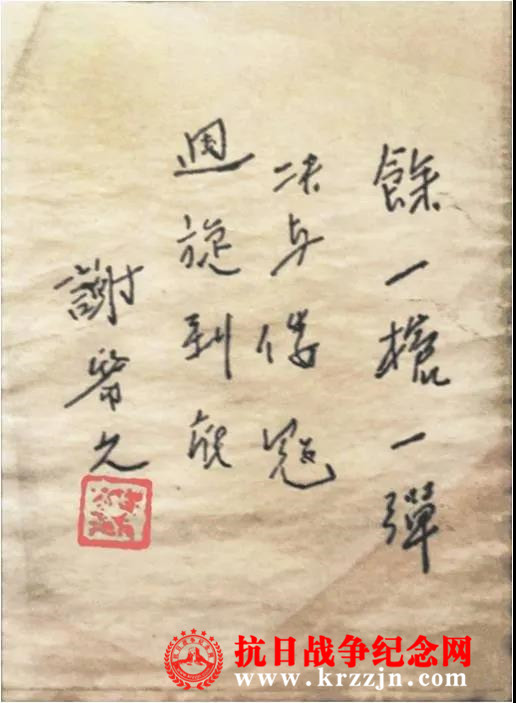 餘一槍一彈
决与倭寇
週旋到底
謝晉元
抗日战争纪念网
www.krzzjn.com